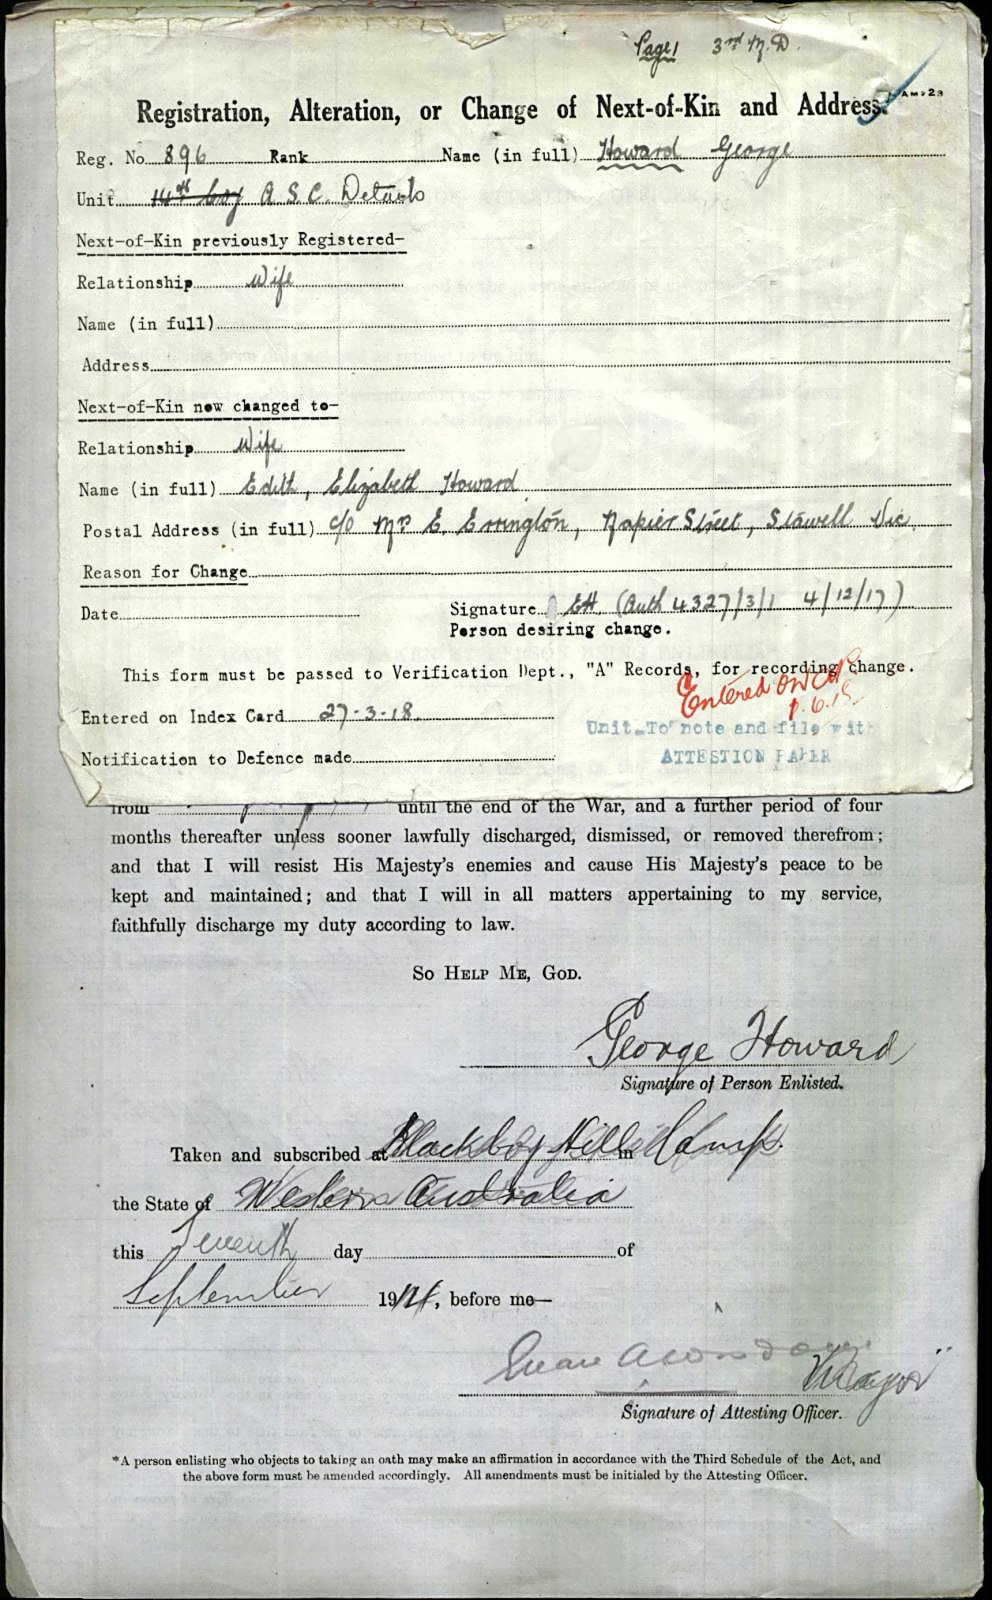 Page 1 3rd M.D.
Registration, Alteration, or Change of Next-of-Kin and Address.
Reg. No. 896 Rank Name (in full) Howard George
Unit 14th Coy A.S.C. Details
Next-of-Kin previously Registered-
Relationship Wife
Name (in full)
Address
Next-of-Kin now changed to-
Relationship Wife
Name (in full) Edith, Elizabeth Howard
Postal Address (in full) c/o Mrs E. Errington, Napier Street, Stawell Vic
Reason for Change
Date Signature EH (Auth 4327/3/1 4/12/17)
Person desiring change.
This form must be passed to Verification Dept., "A" Records, for recording change.
Entered on
Entered on Index Card 27-3-18
Unit To note and file with
Notification to Defence made
ATTESTION PAPER
from until the end of the War, and a further period of four
months thereafter unless sooner lawfully discharged, dismissed, or removed therefrom;
and that I will resist His Majesty's enemies and cause His Majesty's peace to be
kept and maintained; and that I will in all matters appertaining to my service,
faithfully discharge my duty according to law.
So Help Me, God.
George Howard
Signature of Person Enlisted.
Taken and subscribed at Blackboy Hill in Camp.
the State of Western Australia
this Seventh day of
September 1914, before me—
Major
Signature of Attesting Officer.
*A person enlisting who objects to taking an oath may make an affirmation in accordance with the Third Schedule of the Act, and
the above form must be amended accordingly. All amendments must be initialed by the Attesting Officer.